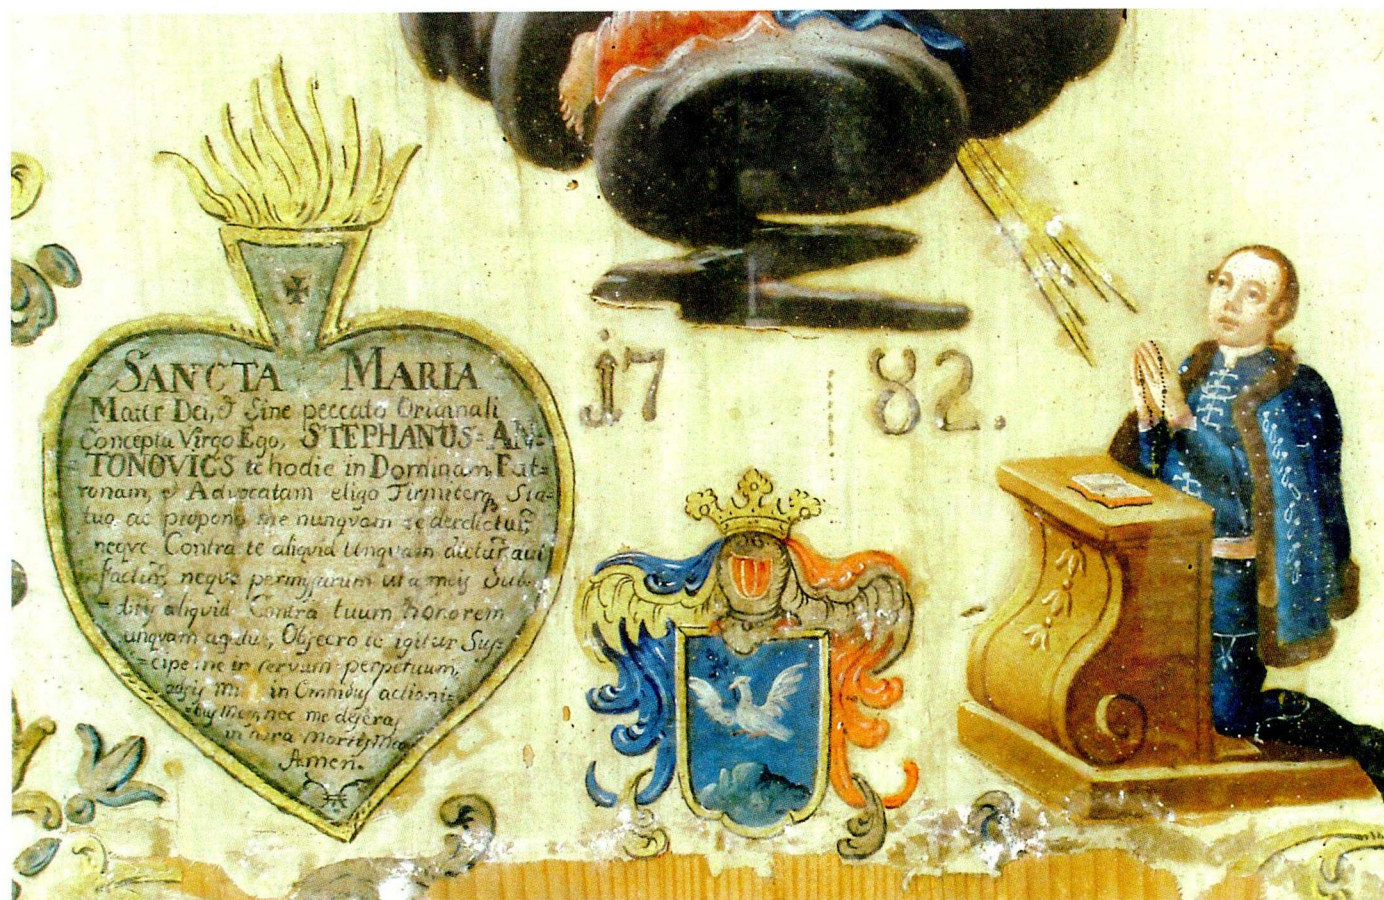 SANCTA MARIA
Mater Dei, & Sine peccato Originali
Concepta Virgo Ego, STEPHANUS= AN=
=TONOVICS te hodie in Dominam Pat=
ronam, & Advocatam eligo Firmiterq, Sta=
tuo ac propono me nunqvam te derelictur,
neqve Contra te aliqvid Unqvam dictur, aut
factur, neqve permissurum ut a meis Sub=
=ditis aliqvid Contra tuum honorem
unqvam agatur, Obsecro te igitur Sus=
=cipe me in servum perpetuum,
adsis mihi in Omnibus actioni=
=bus Meis, nec me deseras
in hora mortis Mea
Amen.
17 82.